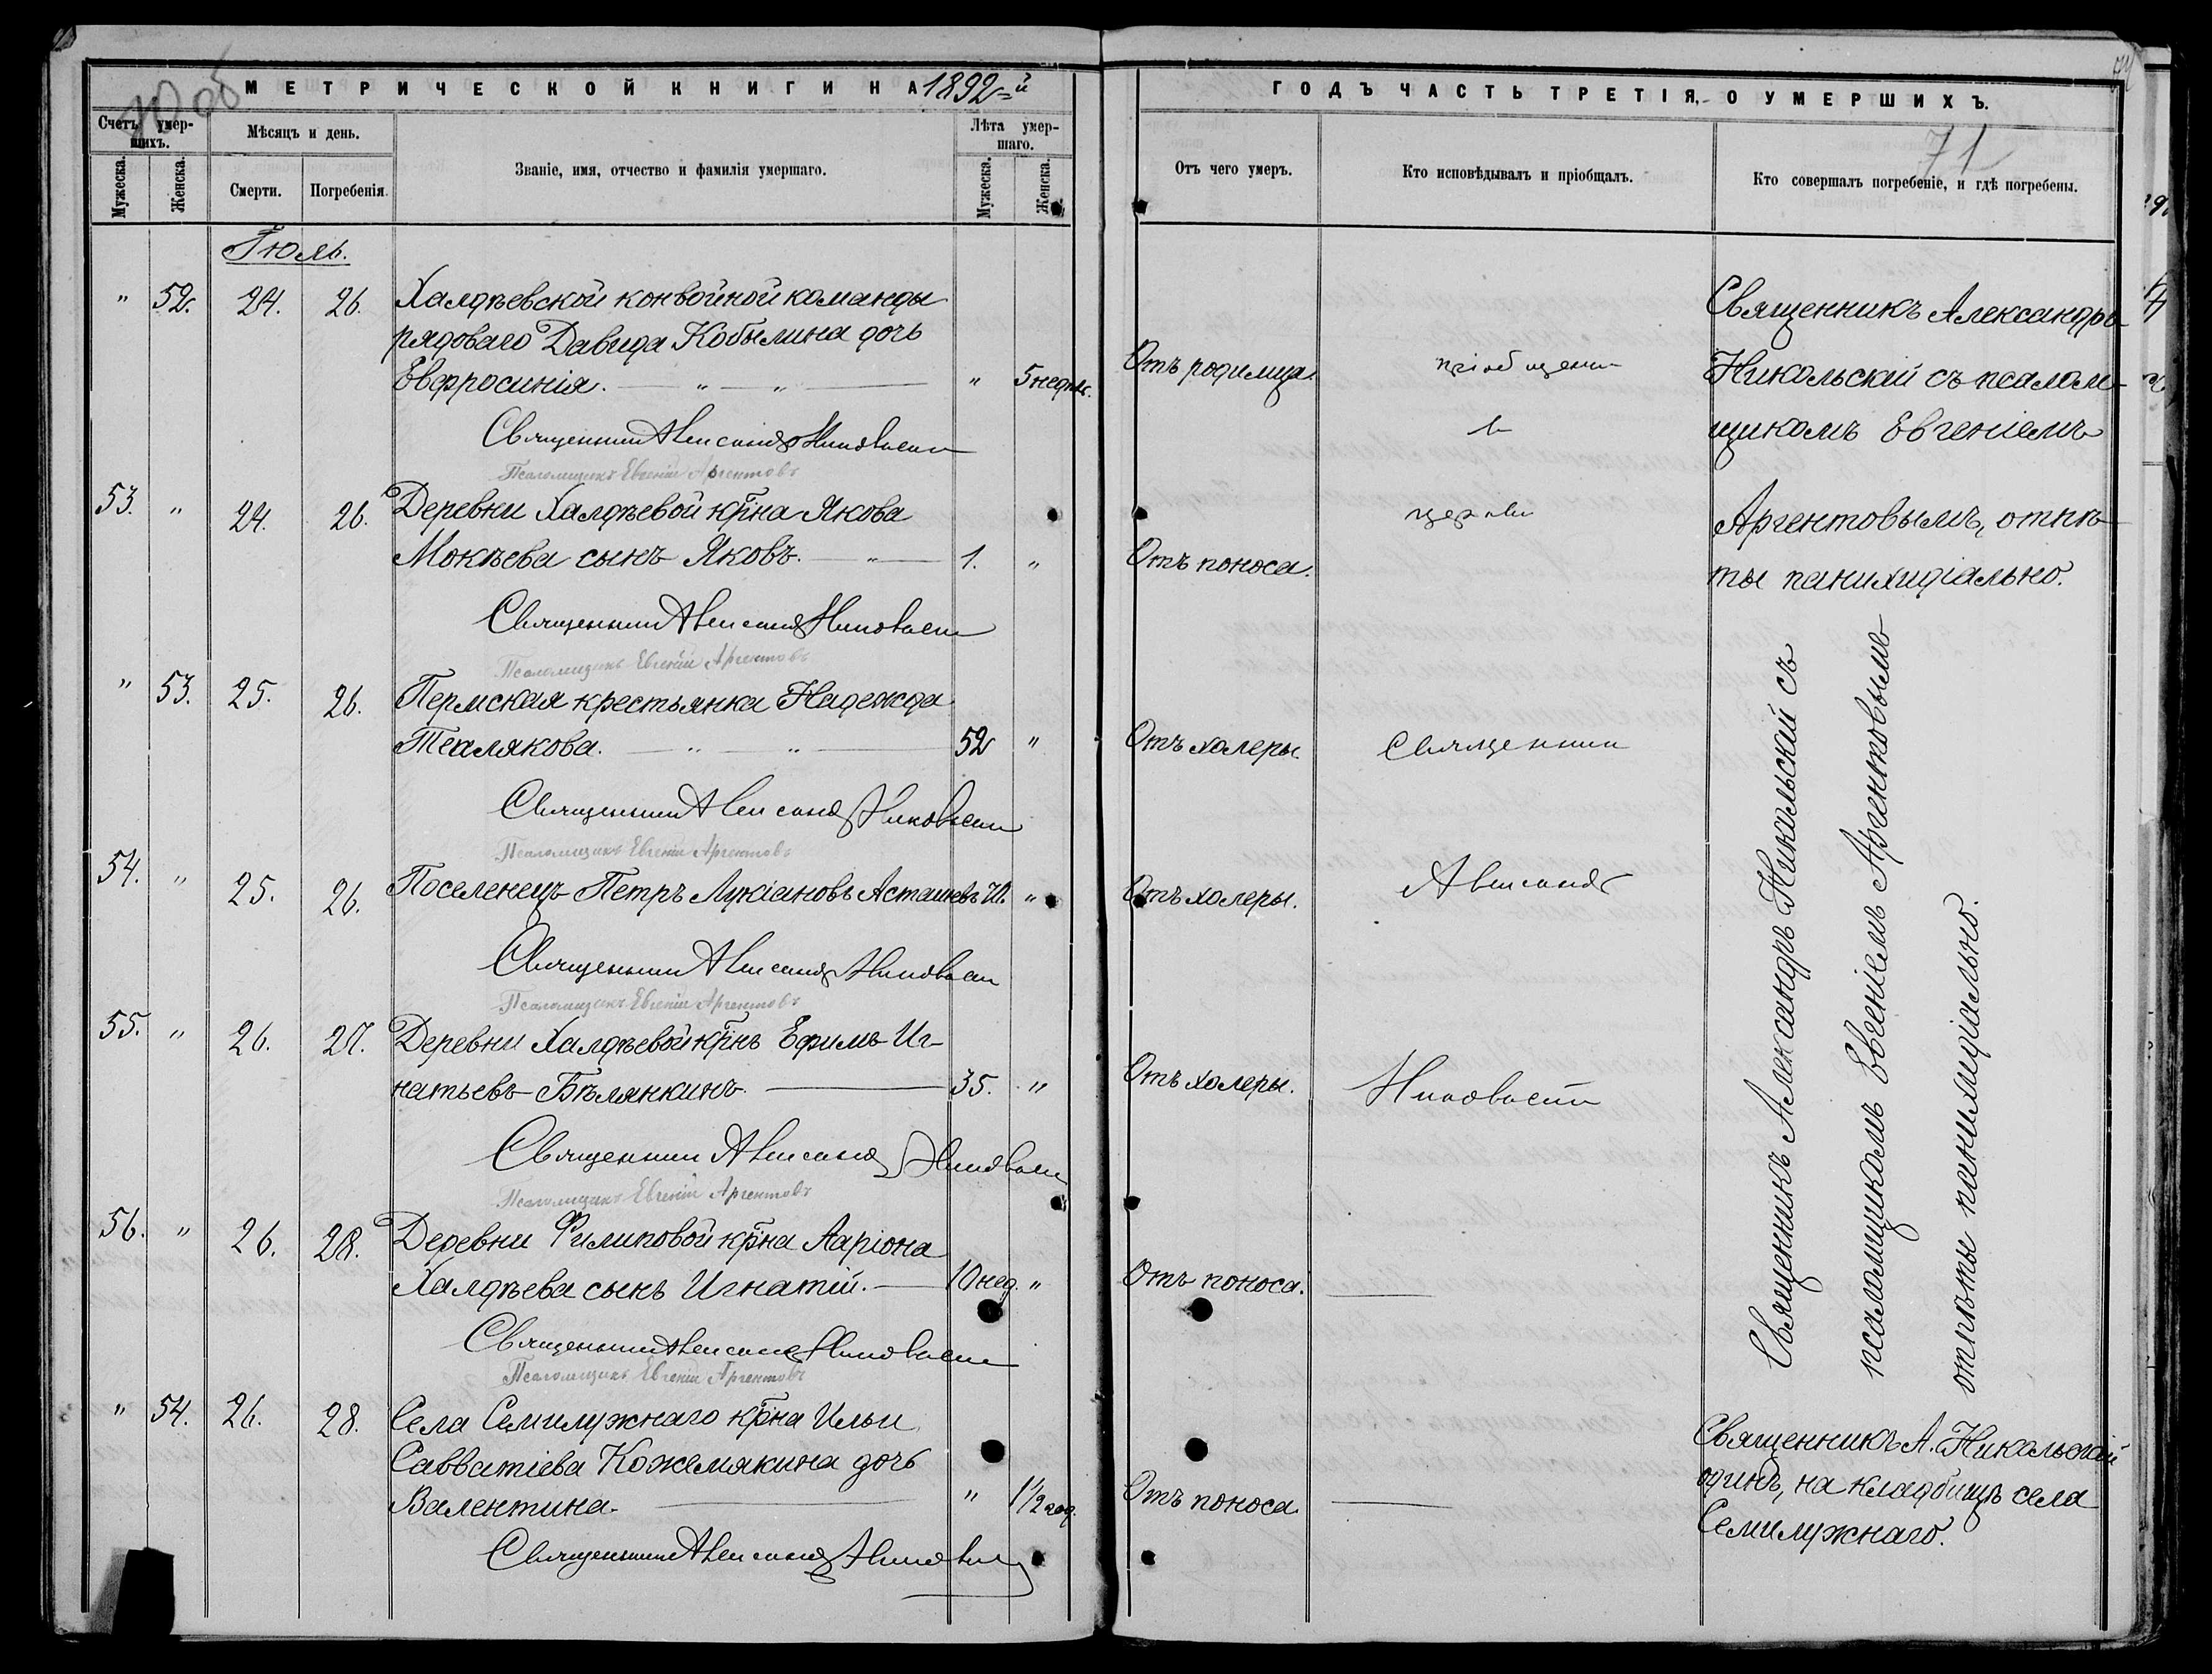 МЕТРИЧЕСКОЙ КНИГИ НА 1892-й
ГОДЪ ЧАСТЬ ТРЕТІЯ, О УМЕРШИХЪ.
71
Счетъ умер-
шихъ.
Мѣсяцъ и день.
Званіе, имя, отчество и фамилія умершаго.
Лѣта умер-
шаго.
Мужеска.
Женска.
Смерти.
Погребенія.
Мужеска.
Женска.
Отъ чего умеръ.
Кто исповѣдывалъ и пріобщалъ.
Кто совершалъ погребеніе, и гдѣ погребены.
Іюль.
" 52. 24. 26. Халдѣевской конвойной команды
рядоваго Давида Кобылина дочь
Евфросинія. " " " 5 недѣл. Отъ родимца.
Священникъ Александръ Никольскій
Псаломщикъ Евгеній Аргентовъ
53. " 24. 26. Деревни Халдѣевой кр̃на Якова
Мокѣева сынъ Яковъ. " 1. " Отъ поноса.
Священникъ Александръ Никольскій
Псаломщикъ Евгеній Аргентовъ
" 53. 25. 26. Пермская крестьянка Надежда
Телякова. " " 52 " Отъ холеры.
Священникъ Александръ Никольскій
Псаломщикъ Евгеній Аргентовъ
54. " 25. 26. Поселенецъ Петръ Лукіановъ Асташевъ 70. " Отъ холеры.
Священникъ Александръ Никольскій
Псаломщикъ Евгеній Аргентовъ
55. " 26. 27. Деревни Халдѣевой кр̃нъ Ефимъ Иг-
натьевъ Бѣлянкинъ. 35. " Отъ холеры.
Священникъ Александръ Никольскій
Псаломщикъ Евгеній Аргентовъ
56. " 26. 28. Деревни Филиповой кр̃на Ларіона
Халдѣева сынъ Игнатій. 10 нед. " Отъ поноса.
Священникъ Александръ Никольскій
Псаломщикъ Евгеній Аргентовъ
" 54. 26. 28. Села Семилужнаго кр̃на Ильи
Савватіева Кожемякина дочь
Валентина. " 1½ год. Отъ поноса.
Священникъ Александръ Никольскій
пріобщены
въ
церкви
Священникъ
Александръ
Никольскій
Священникъ Александръ
Никольскій съ псалом-
щикомъ Евгеніемъ
Аргентовымъ, отпѣ-
ты панихидіально.
Священникъ Александръ Никольскій съ
псаломщикомъ Евгеніемъ Аргентовымъ
отпѣты панихидіально.
Священникъ А. Никольскій
одинъ, на кладбищѣ села
Семилужнаго.